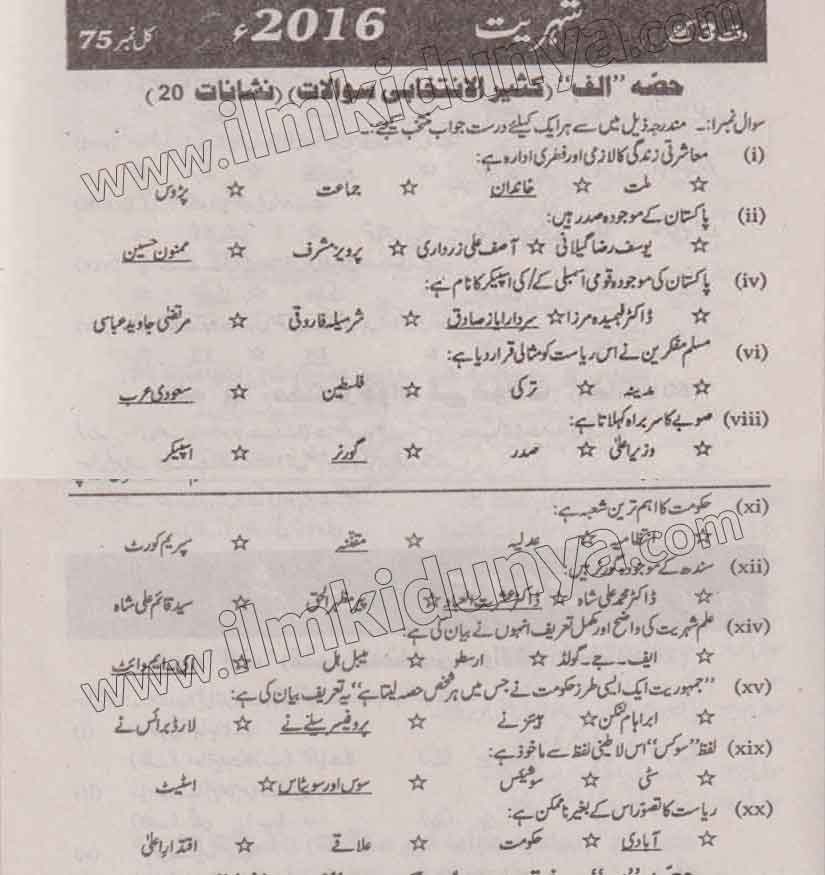 کل نمبر 75 ء2016 شہریت وقت
حصّہ "الف" (کثیر الانتخابی سوالات) (نشانات 20)
سوال نمبر1:۔ مندرجہ ذیل میں سے ہر ایک کیلئے درست جواب منتخب کیجئے:۔
(i) معاشرتی زندگی کا لازمی اور فطری ادارہ ہے:
☆ ملت ☆ خاندان ☆ جماعت ☆ پڑوس
(ii) پاکستان کے موجودہ صدر ہیں:
☆ یوسف رضا گیلانی ☆ آصف علی زرداری ☆ پرویز مشرف ☆ ممنون حسین
(iv) پاکستان کی موجودہ قومی اسمبلی کے/کی اسپیکر کا نام ہے:
☆ ڈاکٹر فہمیدہ مرزا ☆ سردار ایاز صادق ☆ شرمیلہ فاروقی ☆ مرتضیٰ جاوید عباسی
(vi) مسلم مفکرین نے اس ریاست کو مثالی قرار دیا ہے:
☆ مدینہ ☆ ترکی ☆ فلسطین ☆ سعودی عرب
(viii) صوبے کا سربراہ کہلاتا ہے:
☆ وزیر اعلیٰ ☆ صدر ☆ گورنر ☆ اسپیکر
(xi) حکومت کا اہم ترین شعبہ ہے:
☆ انتظامیہ ☆ عدلیہ ☆ مقننہ ☆ سپریم کورٹ
(xii) سندھ کے موجودہ گورنر ہیں:
☆ ڈاکٹر محمد علی شاہ ☆ ڈاکٹر عشرت العباد ☆ پیر مظہر الحق ☆ سید قائم علی شاہ
(xiv) علم شہریت کی واضح اور مکمل تعریف انہوں نے بیان کی ہے:
☆ ایف۔ جے۔ گولڈ ☆ ارسطو ☆ ہیل ☆ ای۔ ایم وائٹ
(xv) "جمہوریت ایک ایسی طرز حکومت ہے جس میں ہر شخص حصہ لیتا ہے" یہ تعریف بیان کی ہے:
☆ ابراہام لنکن ☆ نے ☆ پروفیسر سیلے نے ☆ لارڈ برائس نے
(xix) لفظ "سوکس" اس لاطینی لفظ سے ماخوذ ہے:
☆ سٹی ☆ سوشیئس ☆ سوس اور سویٹاس ☆ اسٹیٹ
(xx) ریاست کا تصوّر اس کے بغیر ناممکن ہے:
☆ آبادی ☆ حکومت ☆ علاقے ☆ اقتدارِ اعلیٰ
www.ilmkidunya.com
www.ilmkidunya.com